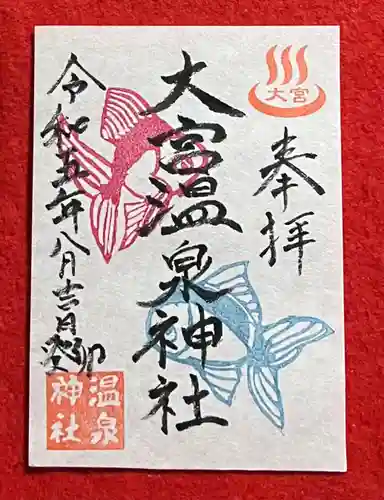 大宮
奉拝
大宮温泉神社
令和五年八月吉日癸卯
温泉
神社